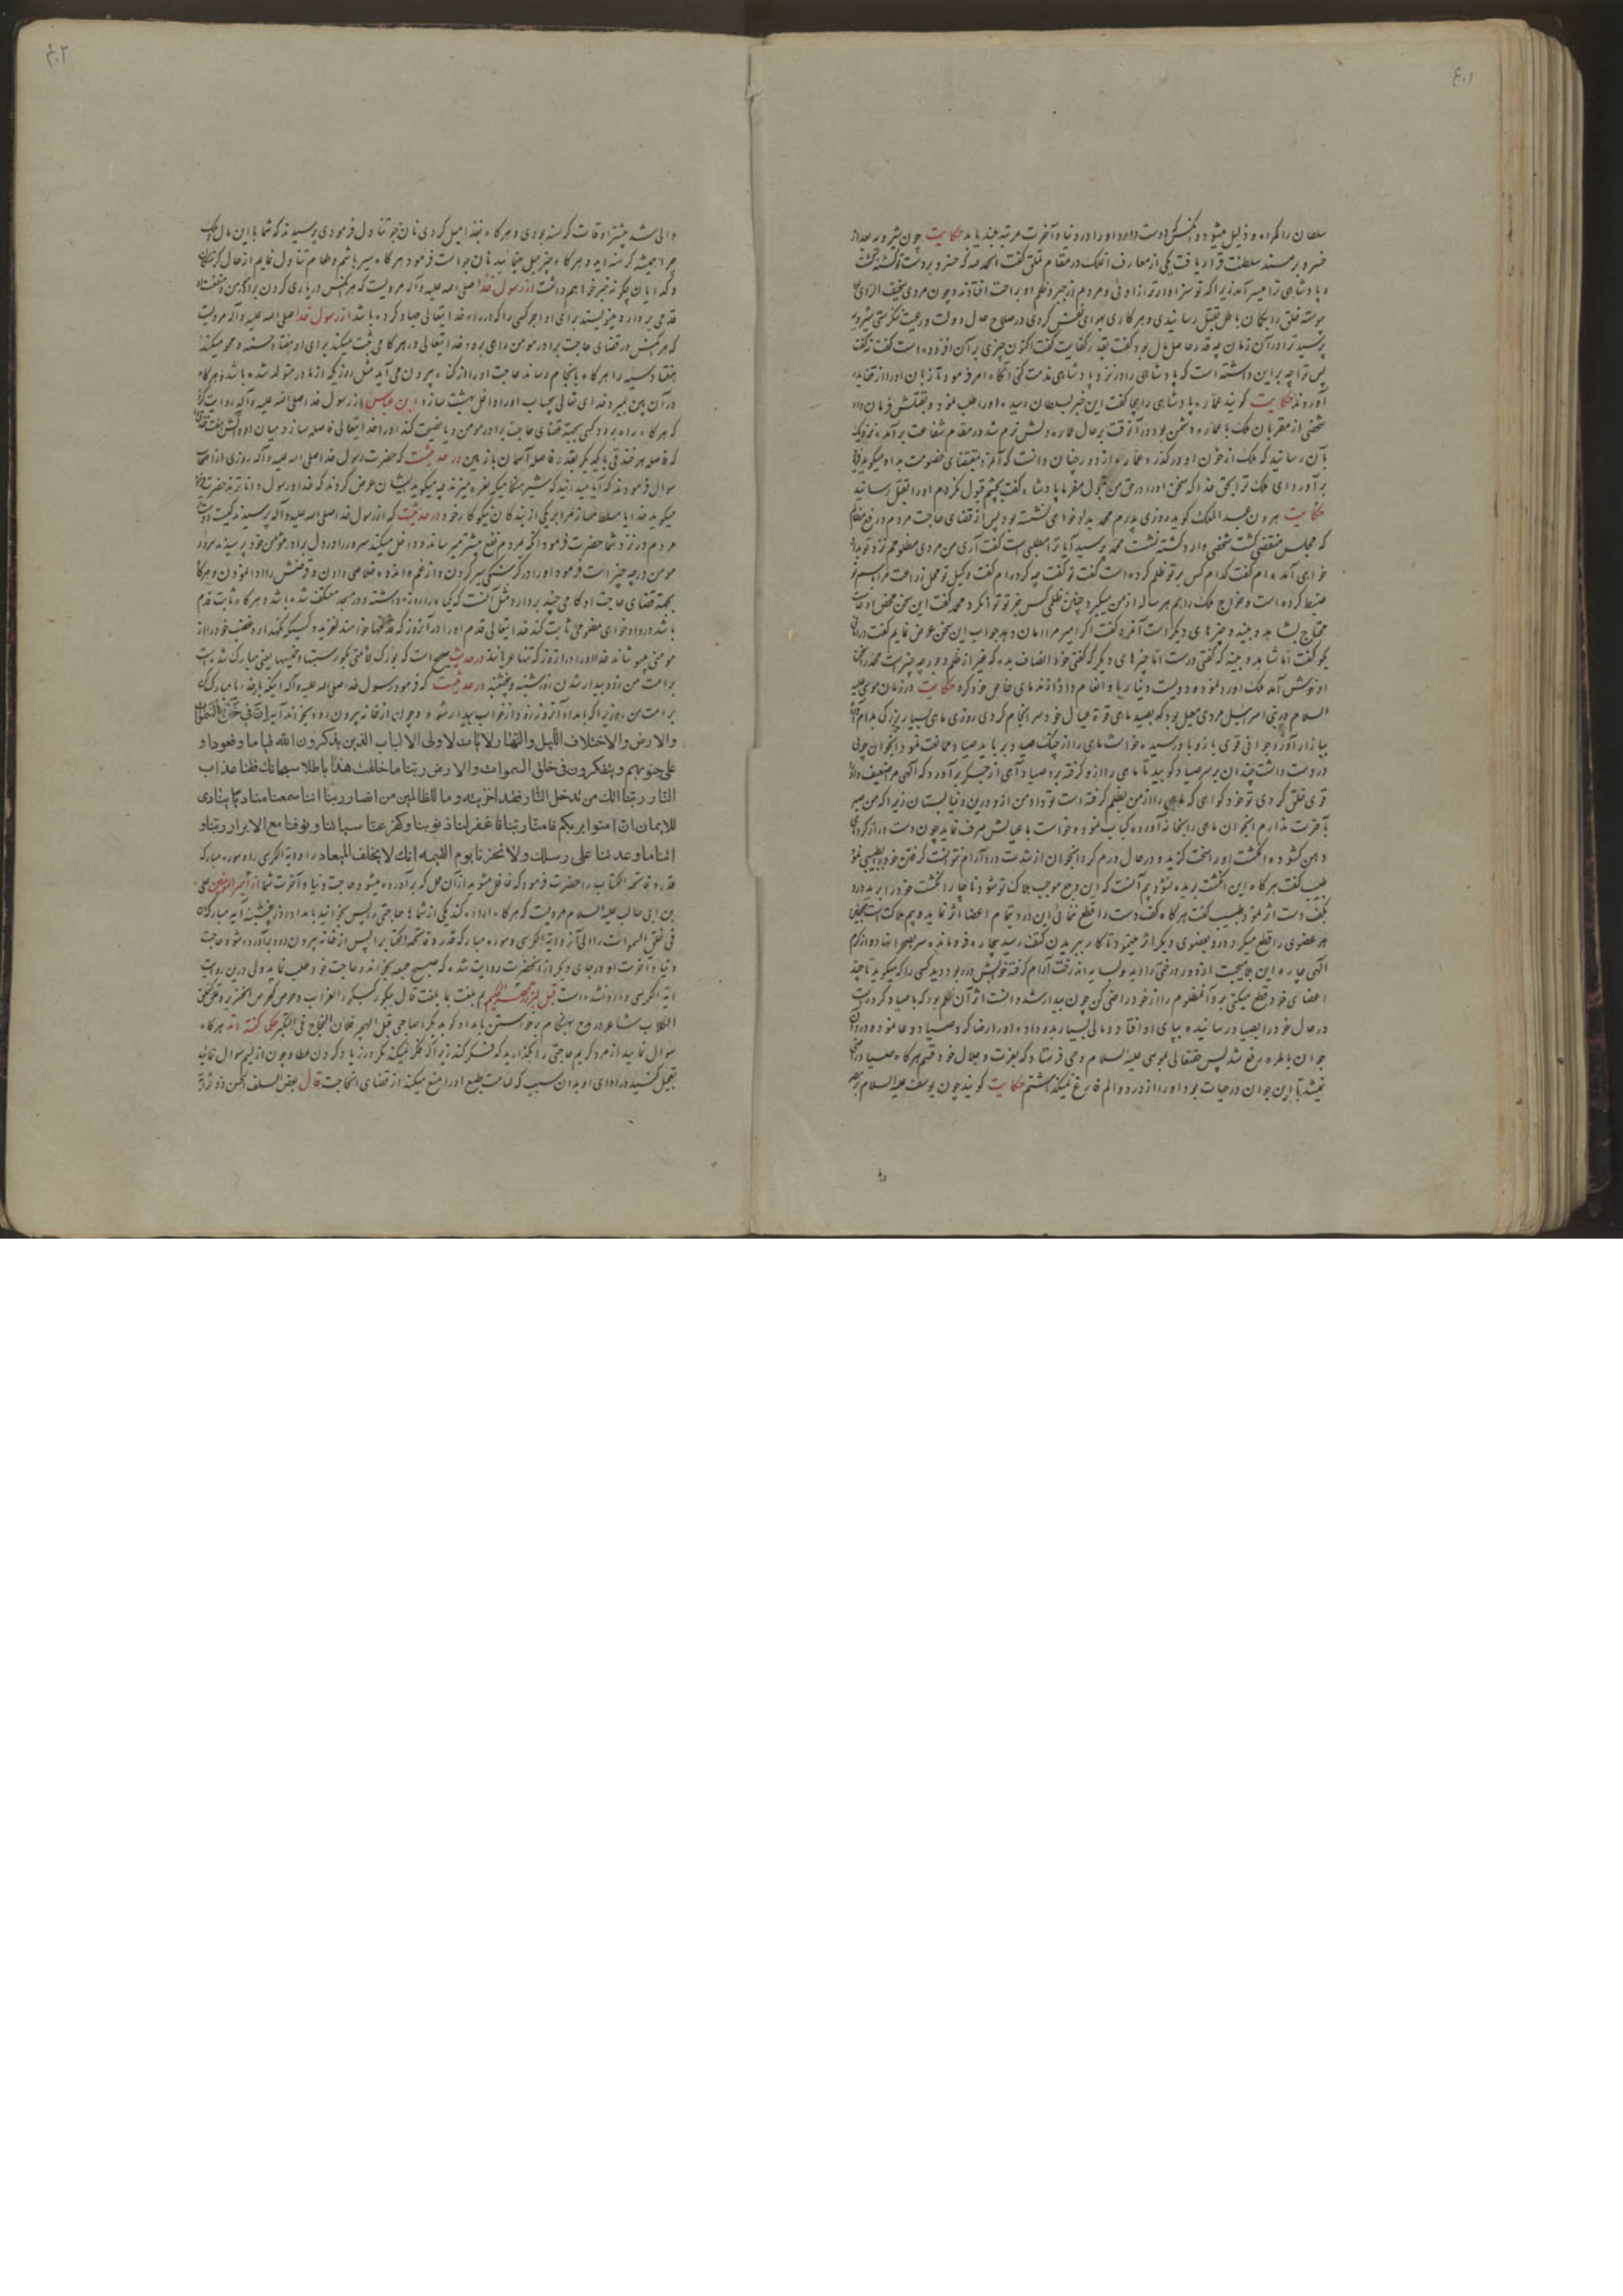 ٤٠١
سلطان را گمراه و ذلیل میشود و آنکس که دوست دارد او را در دنیا و آخرت مرتبه بلند یابد حکایت چون شیرویه بعد از
خسرو بر مسند سلطنت قرار یافت یکی از معارف در مقام تملق گفت الحمد لله که خسرو بر دست تو کشته گشت
و پادشاهی ترا میسر آمد زیرا که تو سزاوارتر از او ئی و مردم از جبر و ظلم او براحت افتادند و چون مردی سخیف الرای
پیوسته خلق را بگمان باطل بقتل رسانیدی و هر کاری بهوای نفس کردی در صلاح حال دولت و رعیت نگرستی شیرویه
پرسید ترا در آن زمان چه قدر حاصل مال بود گفت بقدر کفایت گفت اکنون چیزی بر آن افزوده است گفت نه گفت
پس ترا چه بر این داشته است که پادشاهی را در نزد پادشاهی مذمت کنی آنگاه امر فرمود تا زبان او را از قفا بدر
آوردند حکایت گویند عماره پادشاهی را هجا گفت این خبر بسلطان رسیده او را طلب نمود و بقتلش فرمان داد
شخصی از مقربان ملک با عماره دشمن بود در آنوقت بر حال عماره دلش نرم شد در مقام شفاعت برآمده نزدیک
بآن رسانید که ملک از خون او درگذرد عماره از دور چنان دانست که آنمرد بمقتضای خصومت بد او میگوید
برآورد ای ملک ترا بحق خدا که سخن او را در حق من قبول مفرما پادشاه گفت بچشم قبول نکردم او را بقتل رسانید
حکایت هرون عبد الملک گوید روزی پدرم محمد بدادخواهی نشسته بود پس از قضای حاجت مردم و رفع مظالم
که مجلس منقضی گشت شخصی وارد گشته نشست محمد پرسید آیا ترا مطلبی است گفت آری من مردی مظلومم نزد تو بداد
خواهی آمده ام گفت کدام کس بر تو ظلم کرده است گفت تو گفت چه کرده ام گفت وکیل تو محل زراعت مرا بستم
ضبط کرده است و خراج ملک را هم هر ساله از من میگیرد چنین ظلمی کس جز تو نکرد محمد گفت این سخن محض ادعاست
محتاج بشاهد و بینه و چیزهای دیگر است آنمرد گفت اگر امیر مرا امان دهد جواب این سخن عرض نمایم گفت در امانی
بگو گفت اما شاهد و بینه که گفتی درست اما چیزهای دیگر که گفتی خود انصاف بده که غیر از ظلم و جور چه چیز است محمد را سخن
او خوش آمد ملک او رد نمود و دویست دینار باو انعام داد از ندمای خاص خود کرد حکایت در زمان موسی علیه
السلام در بنی اسرائیل مردی معیل بود که بصید ماهی قوة عیال خود سرانجام کردی روزی ماهی بسیار بزرگی بدام
ببازار آورد جوانی قوی بازو باو رسیده خواست ماهی را از چنگ صیاد برباید صیاد ممانعت نمود آنجوان چوبی
در دست داشت چندان بر سر صیاد کوبید تا ماهی را از او گرفته برد صیاد آهی از جگر برآورد که الهی مرا ضعیف و او را
قوی خلق کردی تو خود گواهی که ماهی را از من بظلم گرفته است تو داد من از او در این دنیا بستان زیرا که من صبر
بآخرت ندارم آنجوان ماهی را بخانه آورده کباب نمود و خواست با عیالش صرف نماید چون دست دراز کرد ماهی
دهن گشوده انگشت او را سخت گزید و در حال ورم کرد آنجوان از شدت درد آرام نتوانست گرفتن خود بطبیبی نمود
طبیب گفت هر گاه این انگشت بریده نشود بیم آنست که این وجع موجب هلاک تو شود ناچار انگشت خود را برید درد
بکف دست اثر نمود طبیب گفت هر گاه کف دست را قطع ننمائی این درد بتمام اعضا اثر نماید و بیم هلاکت است همچنین
هر عضوی را قطع میکرد درد بعضوی دیگر اثر مینمود تا کار ببریدن کتف رسید بیچاره فرومانده سر بصحرا نهاد و از کرم
الهی چاره این بلا میجست از دور درختی را دید و بسایه آندرخت آرام گرفته خوابش در ربود دید کسی را که میگوید تا چند
اعضای خود قطع میکنی برو آنمظلوم را از خود راضی کن چون بیدار شد دانست اثر آن ظلم بود که با صیاد کرده
در حال خود را بصیاد رسانیده بپای او افتاد و مالی بسیار بدو داده او را راضی کرد صیاد دعا نمود و درد آن
جوان بالمره رفع شد پس حقتعالی بموسی علیه السلام وحی فرستاد که بعزت و جلال خود قسم هر گاه صیاد راضی
نمیشد تا این جوان در حیات بود او را از درد و الم فارغ نمیگذاشتم حکایت گویند چون یوسف علیه السلام بمصر
٤٠٢
والی شد بیشتر اوقات گرسنه بودی و هر گاه بغذا میل کردی نان جو تناول فرمودی پرسیدند که شما با این مال و ملک
چرا همیشه گرسنه اید و هر گاه چیز میل مینمائید نان جو است فرمود هر گاه سیر باشم و طعام تناول نمایم از حال گرسنگان
و گدایان چگونه خبر خواهم داشت از رسول خدا صلی الله علیه و آله مرویست که هر کس در یاری کردن برادر مومن و منفعت او
قدمی بردارد مینویسند برای او اجر کسی را که در راه خدایتعالی جهاد کرده باشد از رسول خدا صلی الله علیه و آله مرویست
که هر کس در قضای حاجت برادر مومن داعی برود خدایتعالی در هر گامی ثبت میکند برای او هفتاد حسنه و محو میکند
هفتاد سیئه را هر گاه بانجام رساند حاجت او را از گناه بیرون می آید مثل روزیکه از مادر متولد شده باشد و هر گاه
در آن بین بمیرد خدای تعالی بیحساب او را داخل بهشت سازد ابن عباس از رسول خدا صلی الله علیه و آله روایت کرده
که هر گاه راه برود کسی بجهة قضای حاجت برادر مومن و یا نصیحت کند او را خدایتعالی فاصله سازد میان او و آتش هفت خندق
که فاصله هر خندقی با یکدیگر بقدر فاصله آسمان با زمین در حدیثست که حضرت رسول خدا صلی الله علیه و آله روزی از اصحاب
سوال فرمودند که آیا میدانید که شیر هنگامیکه نعره میزند چه میگوید ایشان عرض کردند که خدا و رسول داناترند حضرت فرمود
میگوید خدایا مسلط مساز مرا بر یکی از بندگان نیکوکار خود در حدیثست که از رسول خدا صلی الله علیه و آله پرسیدند کیست دوسترین
مردم در نزد شما حضرت فرمود آنکه بمردم نفع بیشتر میرساند و داخل میکند سرور را در دل برادر مؤمن خود پرسیدند سرور
مومن در چه چیز است فرمود او را در گرسنگی سیر کردن و از غم و اندوه خلاصی دادن و قرضش را ادا نمودن و هر گاه
بجهة قضای حاجت او گامی چند بردارد مثل آنست که یکماه را روزه داشته و در مسجد معتکف شده باشد و هر گاه ثابت قدم
باشد در دادخواهی مظلومی ثابت کند خدایتعالی قدم او را در آنروز که قدمها خواهند لغزید و کسیکه نگهدارد غضب خود را از
مومنی بپوشاند خدا او را در آنروز که تنها عریانند در حدیث صحیح است که بورک لأمتی بکور سبتها و خمیسها یعنی مبارک شده است
بر امت من زود بیدار شدن در شنبه و پنجشنبه در حدیثست که فرمود رسول خدا صلی الله علیه و آله اینکه بار خدایا مبارک کن
بر امت من روزیرا که بامداد آنروز زود از خواب بیدار شود و چون از خانه بیرون رود بخواند آیه ان فی خلق السموات
والارض والاختلاف اللیل والنهار لایات لاولی الالباب الذین یذکرون الله قیاما وقعودا و
علی جنوبهم ویتفکرون فی خلق السموات والارض ربنا ما خلقت هذا باطلا سبحانک فقنا عذاب
النار ربنا انک من تدخل النار فقد اخزیته وما للظالمین من انصار ربنا اننا سمعنا منادیا ینادی
للایمان ان امنوا بربکم فامنا ربنا فاغفر لنا ذنوبنا وکفر عنا سیئاتنا وتوفنا مع الابرار ربنا و
اتنا ما وعدتنا علی رسلک ولا تخزنا یوم القیمه انک لا تخلف المیعاد را و آیة الکرسی را و سوره مبارکه
قدر و فاتحة الکتاب را حضرت فرمود که غافل مشوید از آن عمل که برآورده میشود حاجت دنیا و آخرت شما از امیر المومنین علی
بن ابی طالب علیه السلام مرویست که هر گاه اراده کند یکی از شما حاجتی را پس بخوانید بامداد روز پنجشنبه آیه مبارکه ان
فی خلق السموات را الی آخر و آیة الکرسی و سوره مبارکه قدر و فاتحة الکتاب را پس از خانه بیرون رود برآورده میشود حاجت
دنیا و آخرت او در جای دیگر از آنحضرت روایت شده که صبح جمعه بخواند و حاجت خود طلب نماید ولی در این روایت
آیة الکرسی وارد نشده است قیل لبزرجمهر الحکیم بم بلغت ما بلغت قال ببکور کبکور الغراب وحرص کحرص الخنزیر وتملق کتملق
الکلاب شاعر در مدح بهنگام برخواستن بامداد گوید بکرا صاحبی قبل الهجیر فان النجاح فی التبکیر حکما گفته اند هر گاه
سوال نمایید از مرد کریم حاجتی را بگذارید که فکر کند زیرا که فکر نمیکند مگر در زیاد کردن عطا و چون از لئیم سوال نمائید
تعجیل کنید در ادای او بدان سبب که لئامت طبع او را منع میکند از قضای انحاجت قال بعض السلف